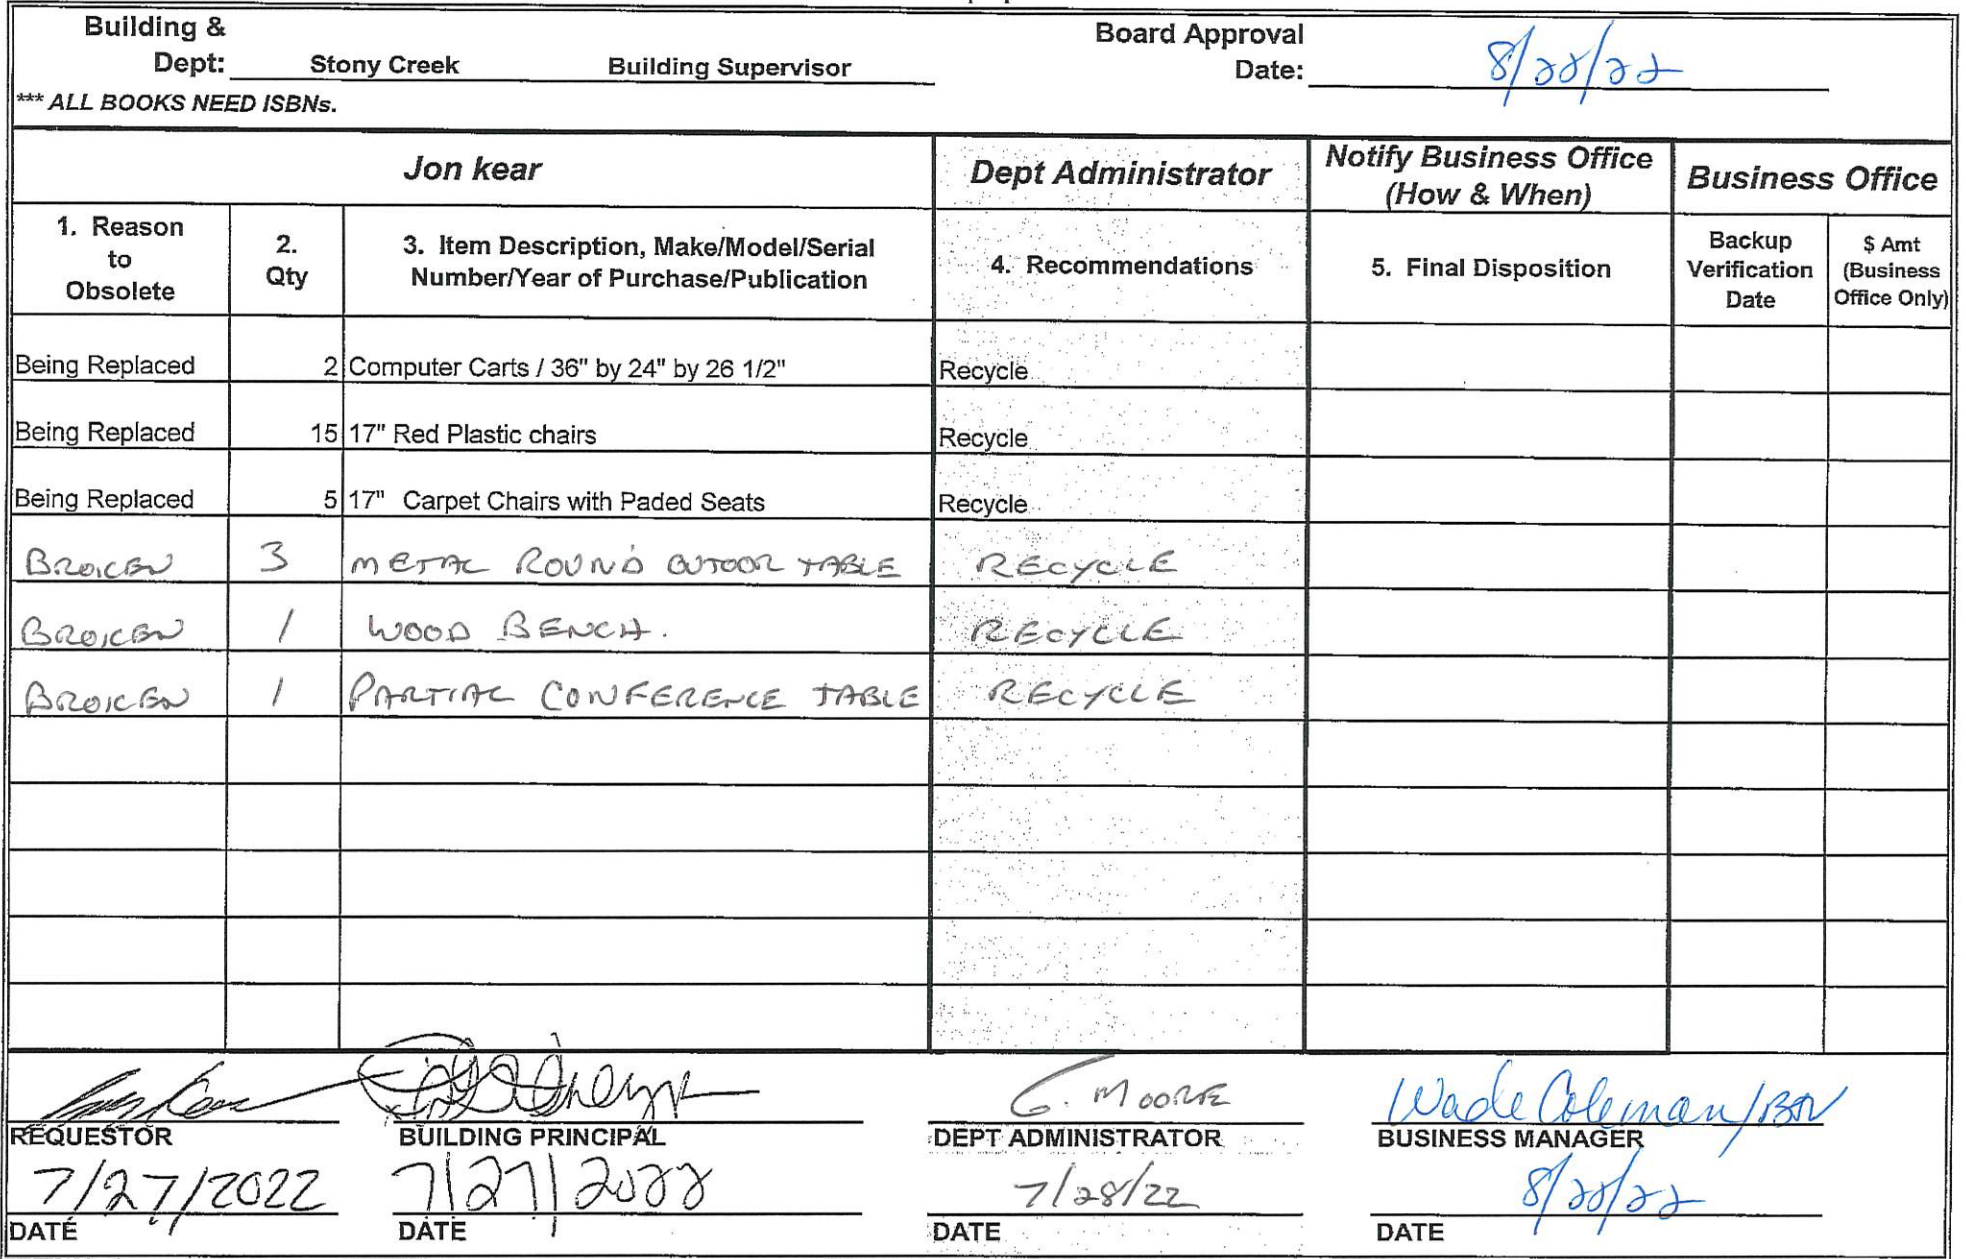 Building &
Dept: Stony Creek Building Supervisor
Board Approval
Date: 8/28/22
*** ALL BOOKS NEED ISBNs.
Jon kear
Dept Administrator
Notify Business Office
(How & When)
Business Office
1. Reason
to
Obsolete
2.
Qty
3. Item Description, Make/Model/Serial
Number/Year of Purchase/Publication
4. Recommendations
5. Final Disposition
Backup
Verification
Date
$ Amt
(Business
Office Only)
Being Replaced 2 Computer Carts / 36" by 24" by 26 1/2" Recycle
Being Replaced 15 17" Red Plastic chairs Recycle
Being Replaced 5 17" Carpet Chairs with Paded Seats Recycle
BROKEN 3 METAL ROUND OUTOOR TABLE RECYCLE
BROKEN 1 WOOD BENCH. RECYCLE
BROKEN 1 PARTIAL CONFERENCE TABLE RECYCLE
G. MOORE
Wade Coleman/BN
REQUESTOR
BUILDING PRINCIPAL
DEPT ADMINISTRATOR
BUSINESS MANAGER
7/27/2022
7/27/2022
7/28/22
8/28/22
DATE
DATE
DATE
DATE